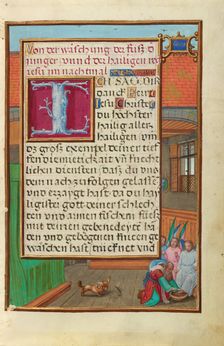 Von der waschung der fusz d
iunger vnnd der heiligen re
 iesu im nachtmal
ICH SAG DIR
danck Herr
Jesu Christe
du höchster
heilig aller
heiligen vm
dz grosz exempel deiner tief
en diemietickait vn knecht
lichen diensten, dastu vns
dem nach zu folgen gelasst
und erzaigt hast da du har
ligister gott deiner schlech
ten vnd armen fischern füsz
mit deinen gebenedeyte hän
den vnd gebognen knieen ge
waschen hast, trucknet vnd